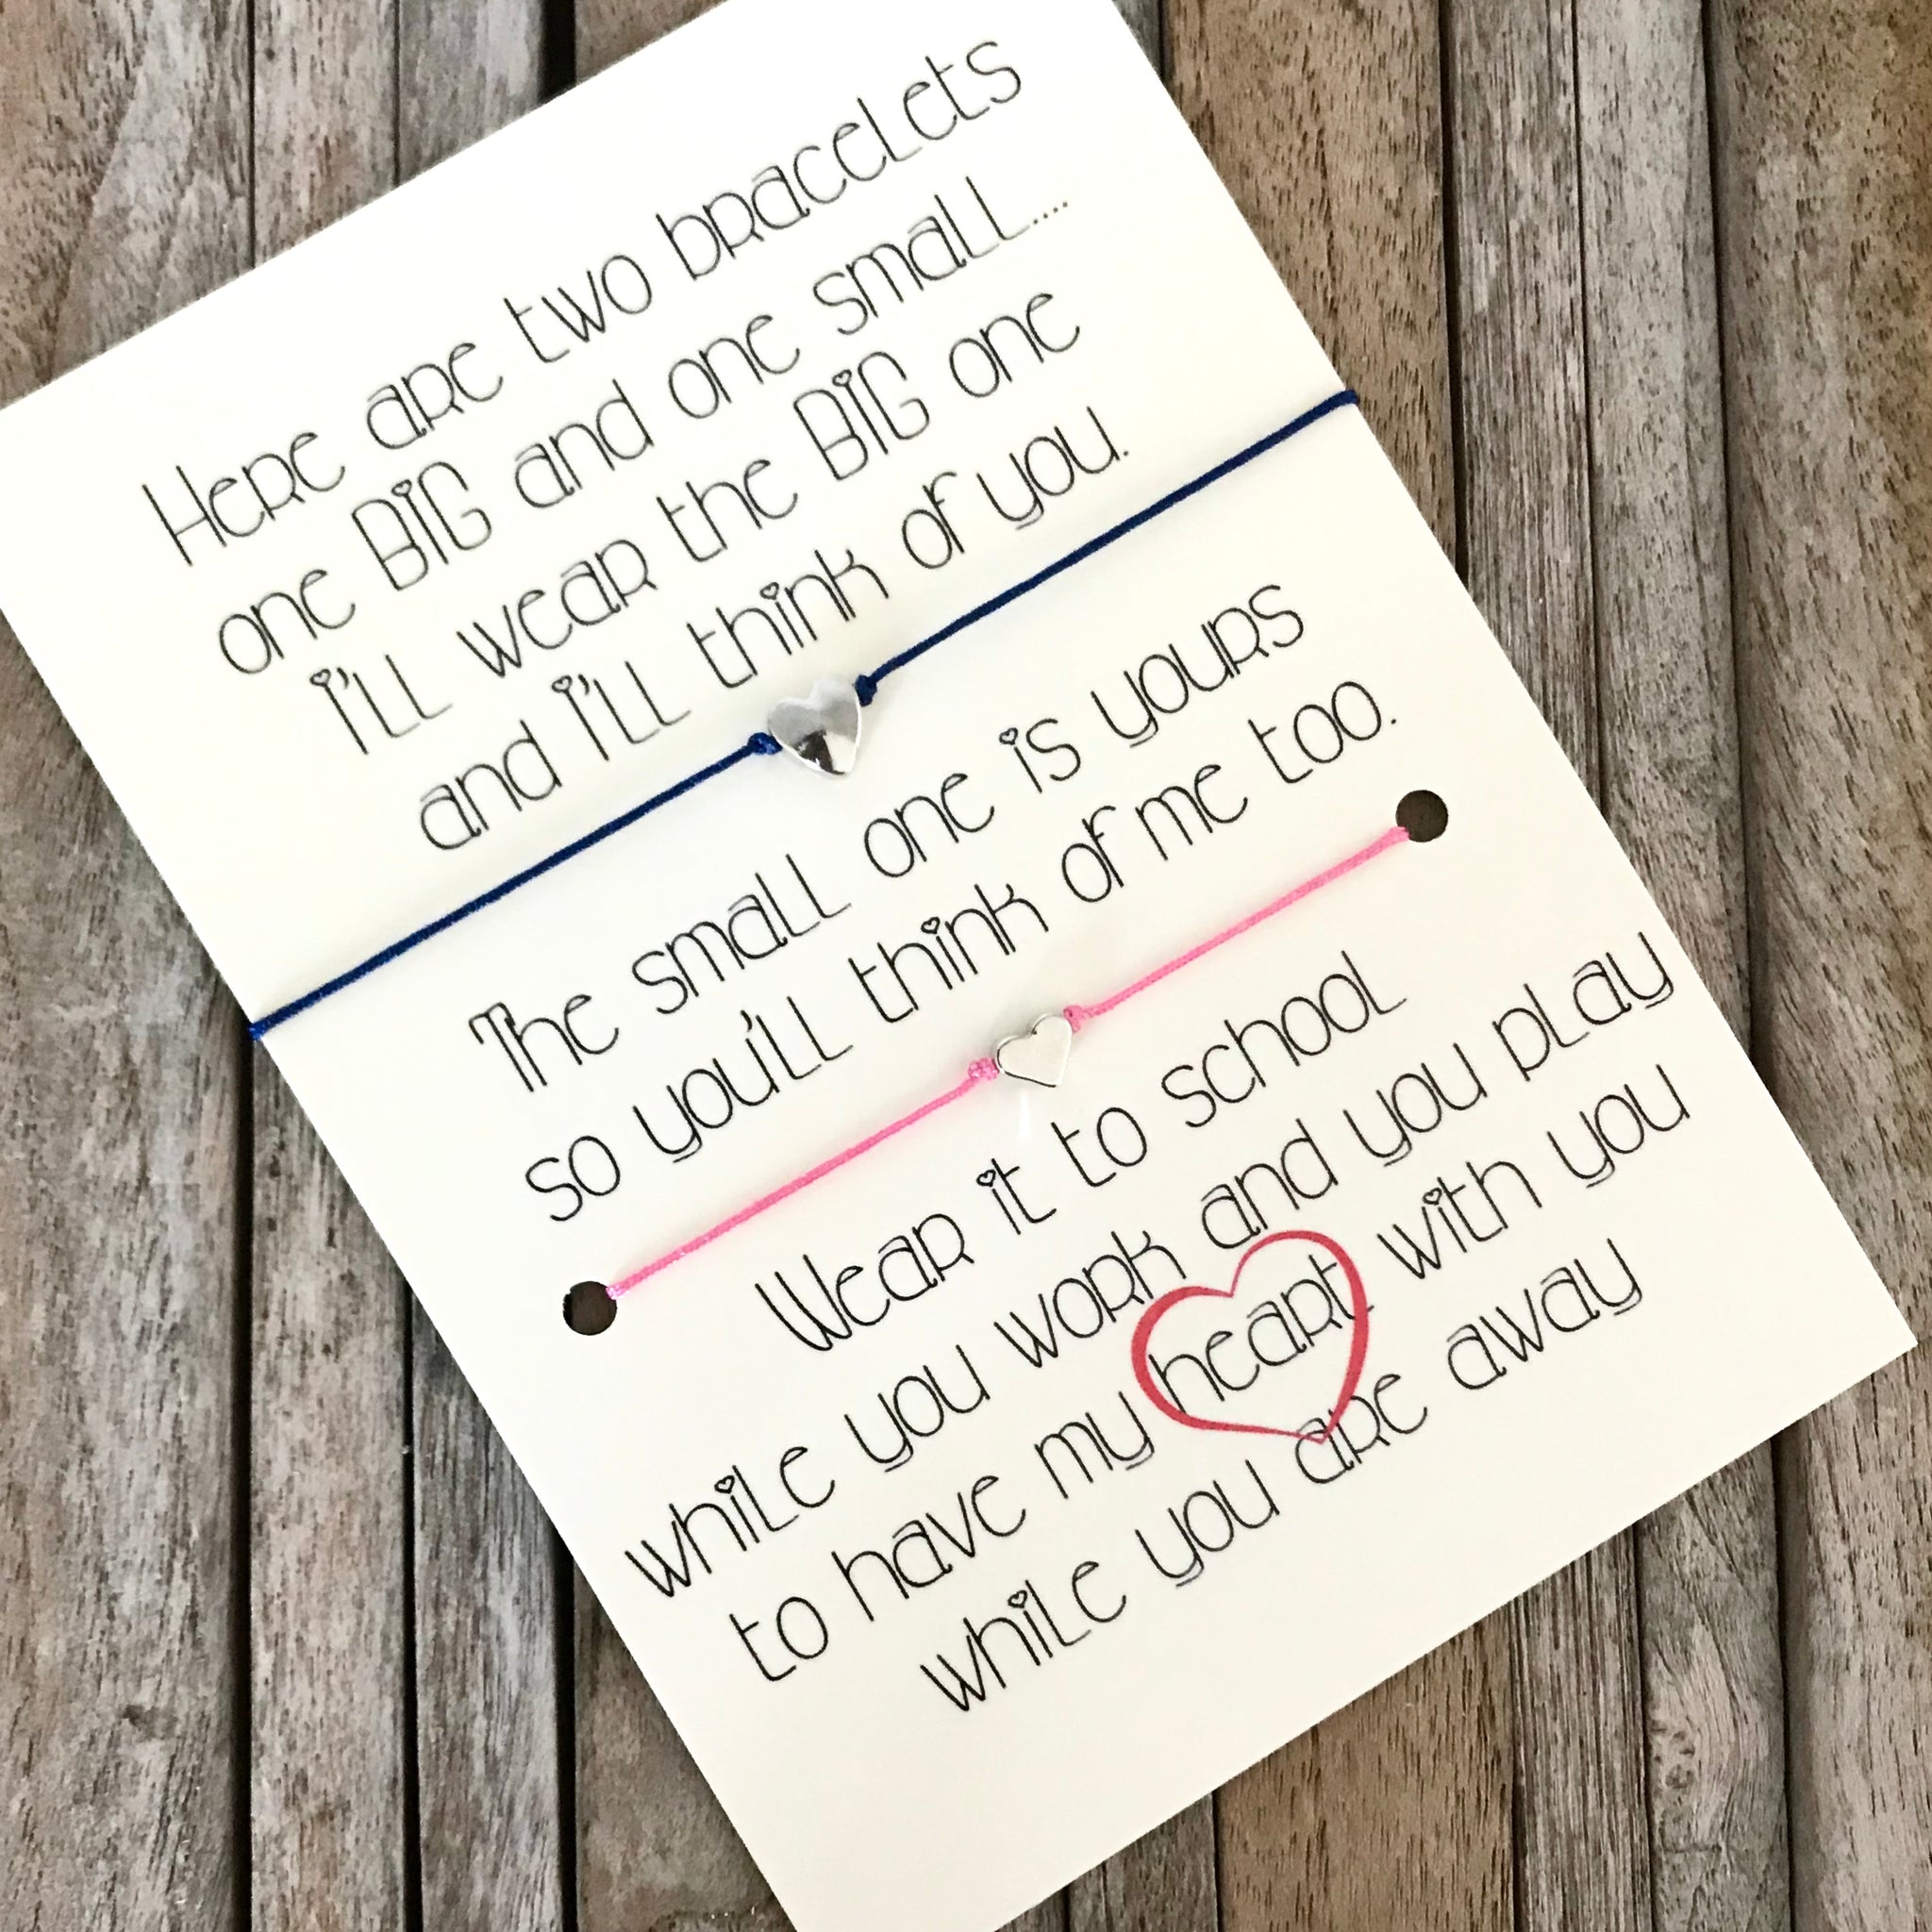 Here are two bracelets
one BIG and one small....
I'll wear the BIG one
and I'll think of you.
The small one is yours
so you'll think of me too.
Wear it to school
while you work and you play
to have my heart with you
while you are away